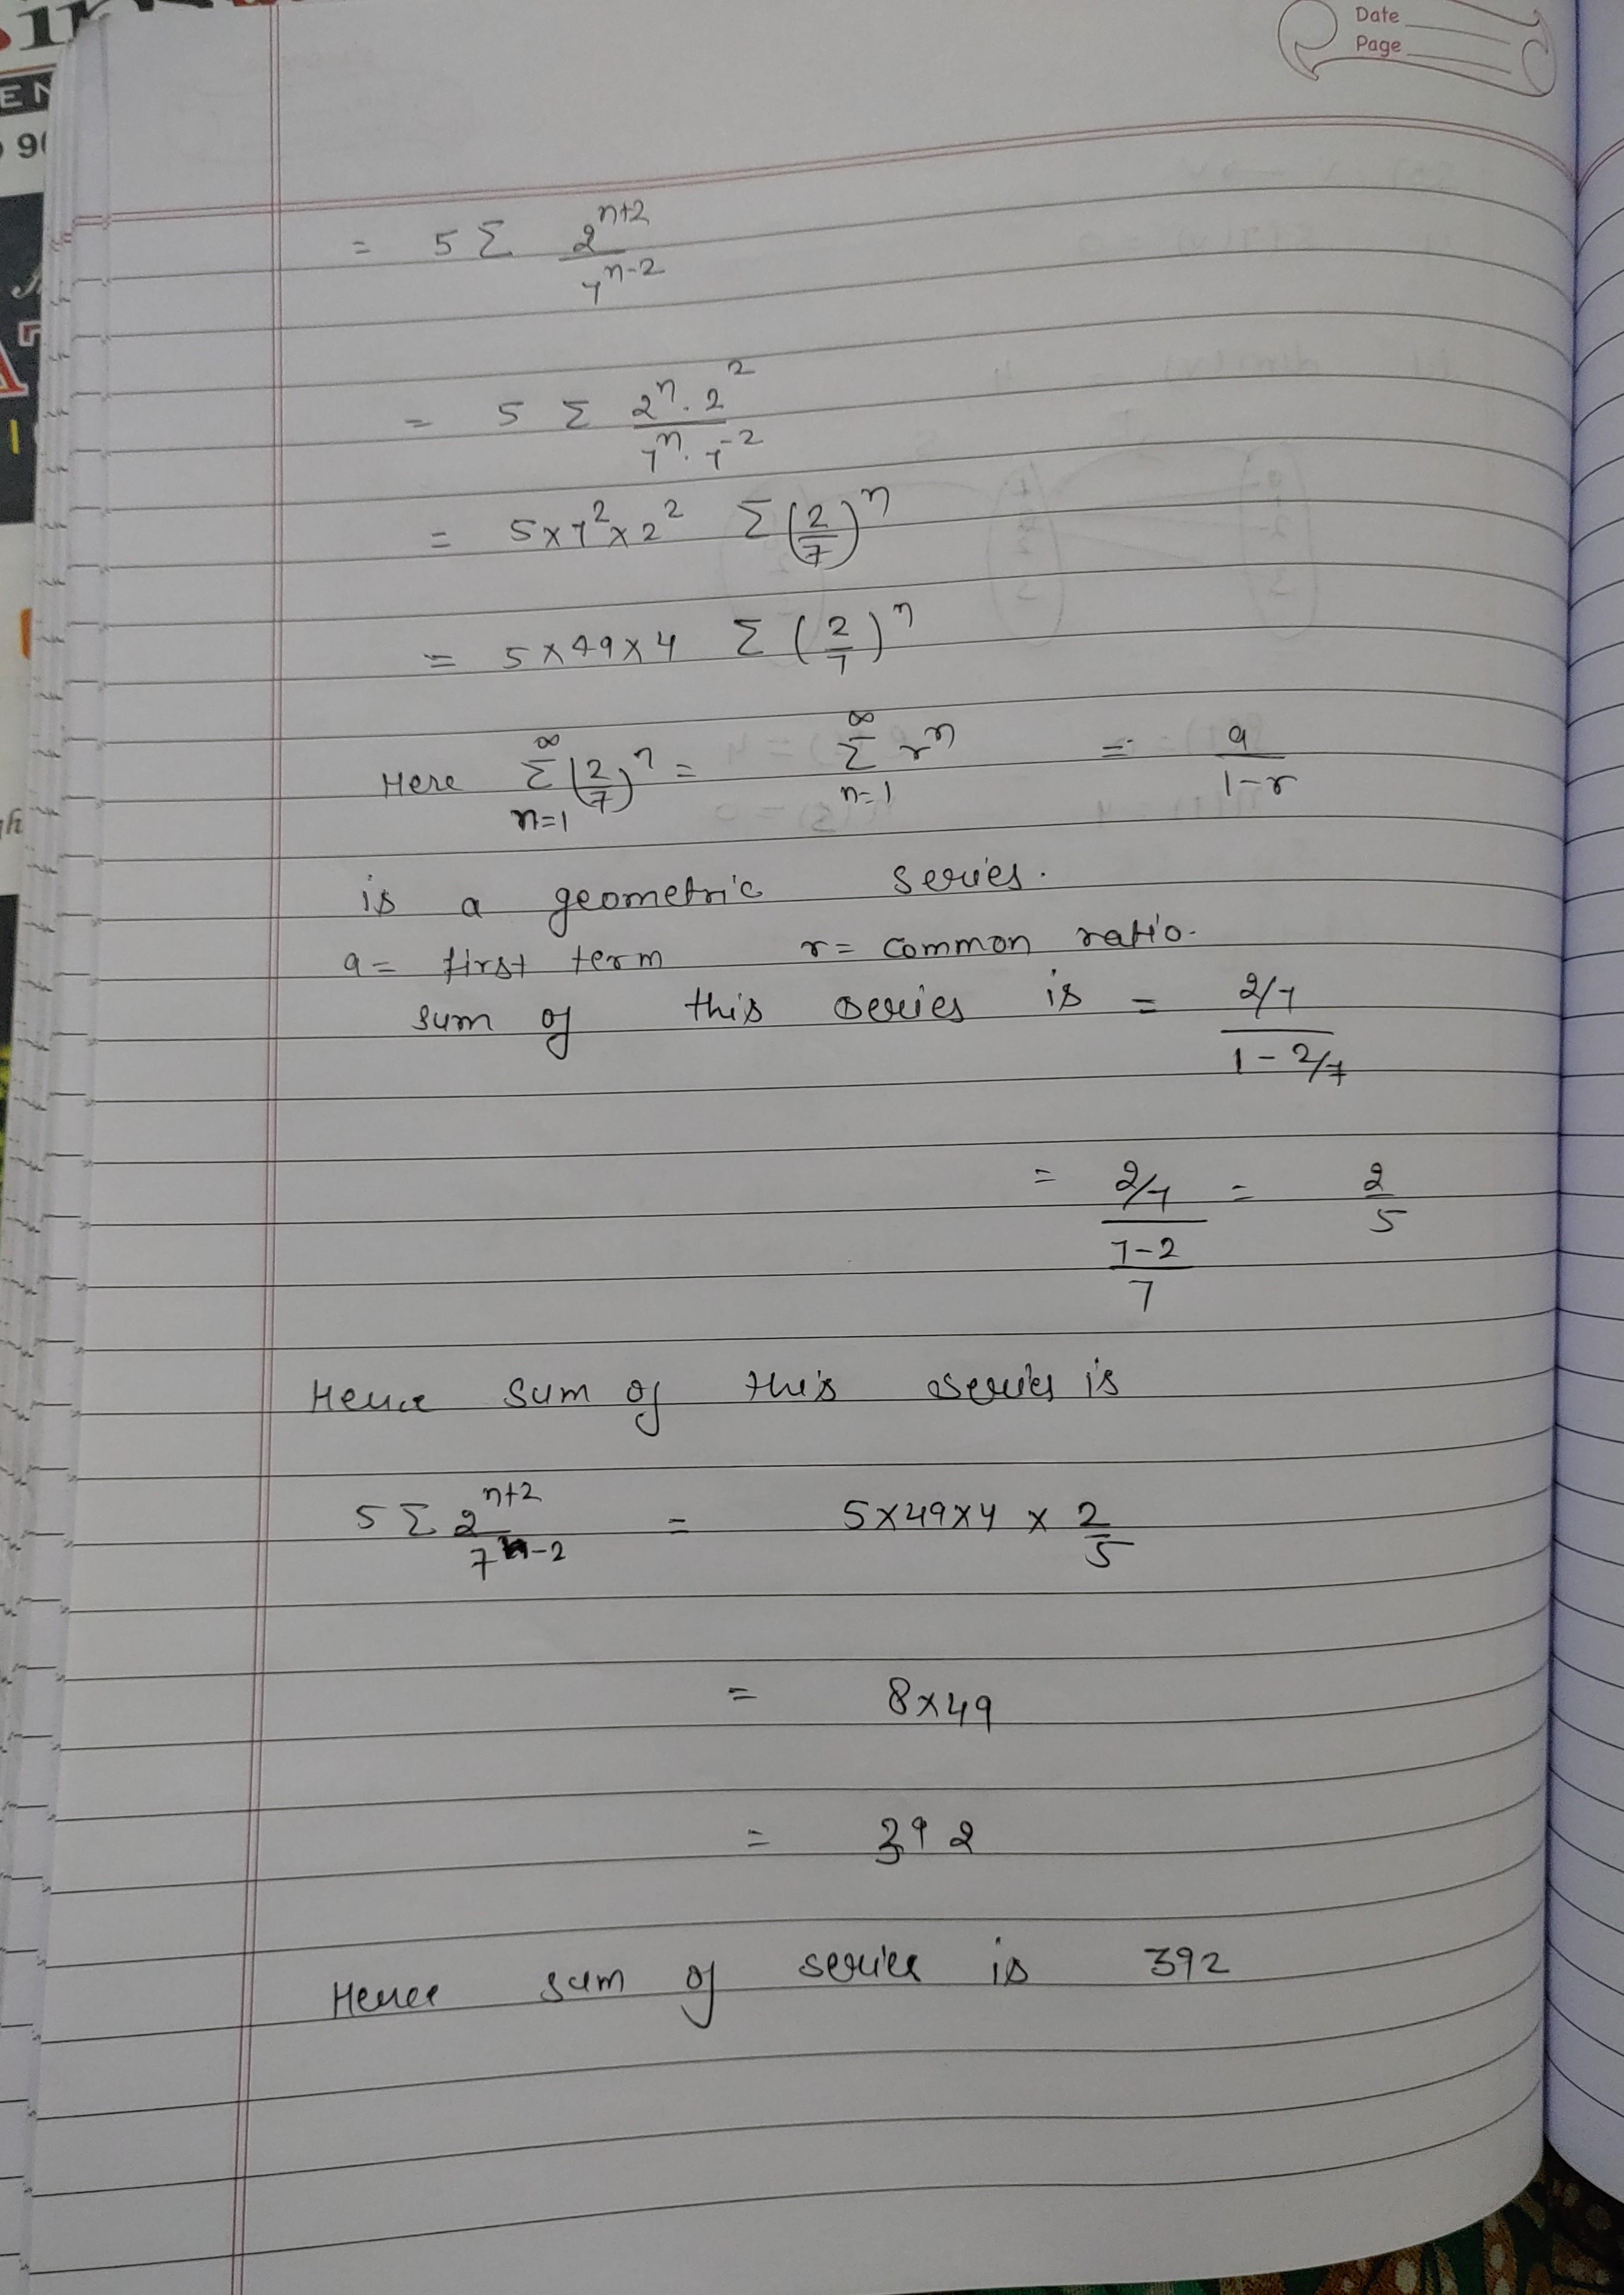 Date
Page
= 5 Σ 2^(n+2) / 7^(n-2)
= 5 Σ 2^n . 2^2 / 7^n . 7^-2
= 5 × 7^2 × 2^2 Σ (2/7)^n
= 5 × 49 × 4 Σ (2/7)^n
Here ∞ Σ n=1 (2/7)^n = ∞ Σ n=1 r^n = a / 1-r
is a geometric series.
a = first term r = common ratio.
sum of this series is = 2/7 / 1 - 2/7
= 2/7 / 7-2 / 7 = 2/5
Hence sum of this series is
5 Σ 2^(n+2) / 7^(n-2) = 5 × 49 × 4 × 2/5
= 8 × 49
= 392
Hence sum of series is 392